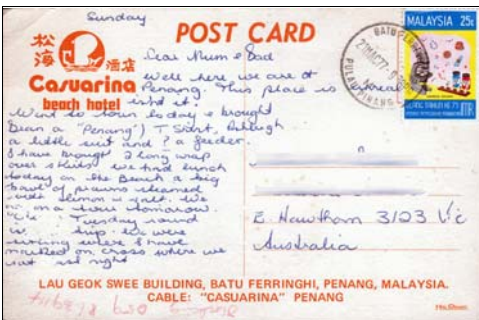 Sunday
POST CARD
松海酒店
Casuarina
beach hotel
Dear Mum & Dad
Well here we are at
Penang. This place is unreal
isn't it.
Went to town today & brought
Dean a "Penang") T Shirt, Ashleigh
a little suit and ? a feeder.
I have brought 2 long wrap
over skirts. We had lunch
today on the Beach a big
bowl of prawns steamed
with lemon & salt. We
on a tour tomorrow
Tuesday round
trip. We were
where I have
marked on cross where we
sat last night
BATU FERRINGHI
PULAU PINANG
MALAYSIA 25c
E. Hawthorn 3123 Vic
Australia
LAU GEOK SWEE BUILDING, BATU FERRINGHI, PENANG, MALAYSIA.
CABLE: "CASUARINA" PENANG